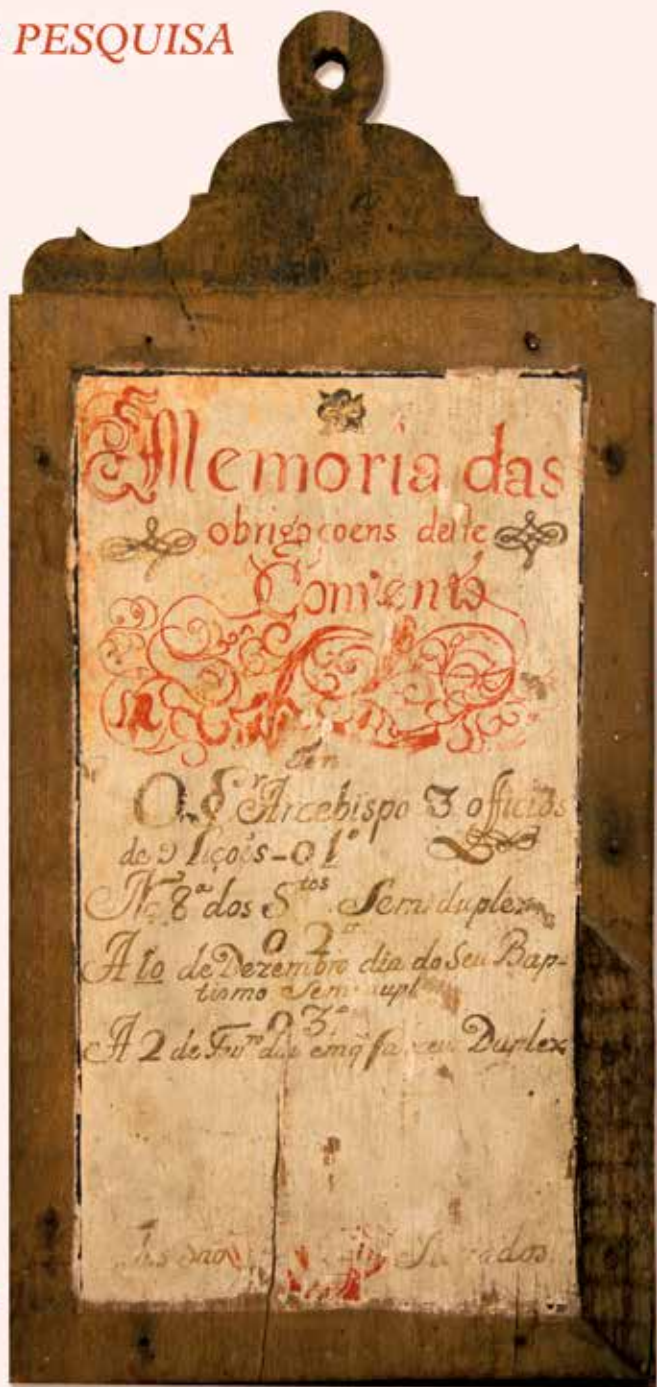 PESQUISA
Memoria das
obrigaçoens deste
Convento
Tem
O Sr Arcebispo 3 officios
de 9 liçoẽs - o 1º
Na 8ª dos Stos Semiduplex
o 2º
A 10 de Dezembro dia do Seu Bap-
tismo Semidupl
o 3º
A 2 de Fevro dia emq̃ faleceu Duplex